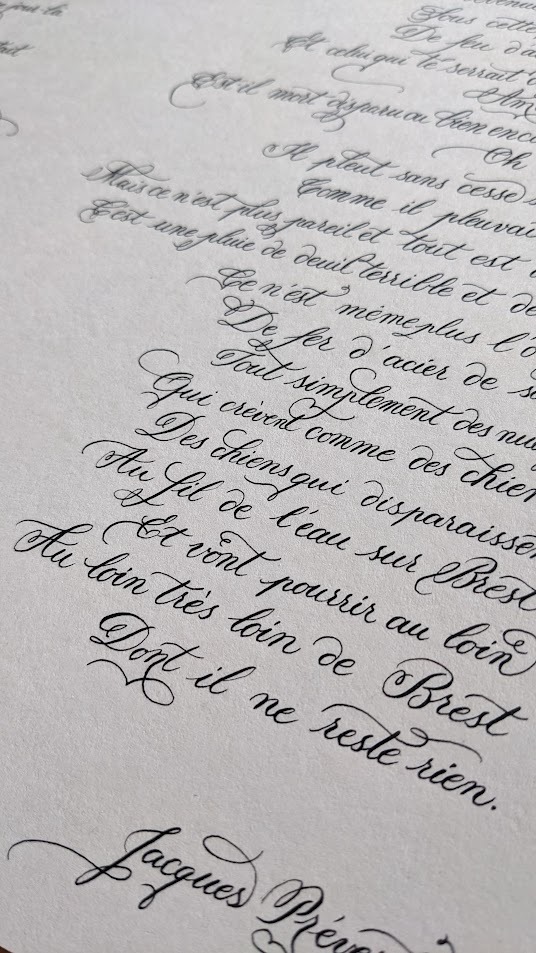 Sous cette
De feu d'a
Et celui qui te serrait
Am
Est il mort disparu ou bien enco
Oh
Il pleut sans cesse
Comme il pleuvai
Mais ce n'est plus pareil et tout est
C'est une pluie de deuil terrible et de
Ce n'est même plus l'o
De fer d'acier de s
Tout simplement des nu
Qui crèvent comme des chien
Des chiens qui disparaissen
Au fil de l'eau sur Brest
Et vont pourrir au loin
Au loin très loin de Brest
Dont il ne reste rien.
Jacques Préve